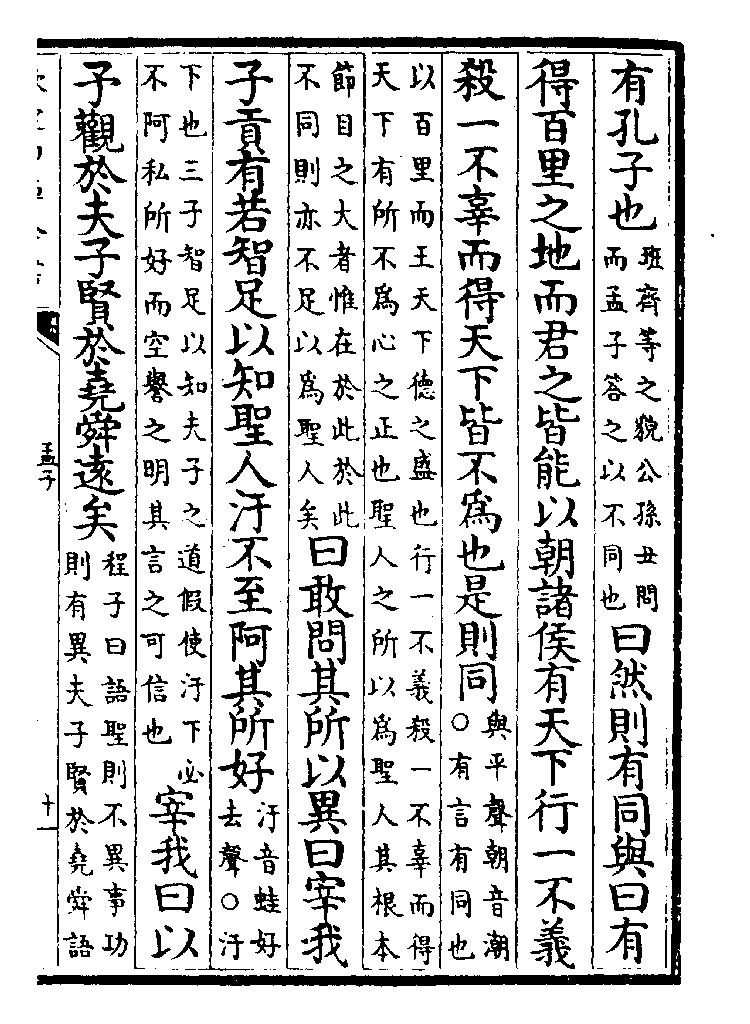 有孔子也班齊等之貌公孫丑問而孟子答之以不同也曰然則有同與曰有
得百里之地而君之皆能以朝諸侯有天下行一不義
殺一不辜而得天下皆不為也是則同與平聲朝音潮○有言有同也
以百里而王天下德之盛也行一不義殺一不辜而得
天下有所不為心之正也聖人之所以為聖人其根本
節目之大者惟在於此於此不同則亦不足以為聖人矣曰敢問其所以異曰宰我
子貢有若智足以知聖人汙不至阿其所好汙音蛙好去聲○汙
下也三子智足以知夫子之道假使汙下必不阿私所好而空譽之明其言之可信也宰我曰以
予觀於夫子賢於堯舜遠矣程子曰語聖則不異事功則有異夫子賢於堯舜語
孟子
十一